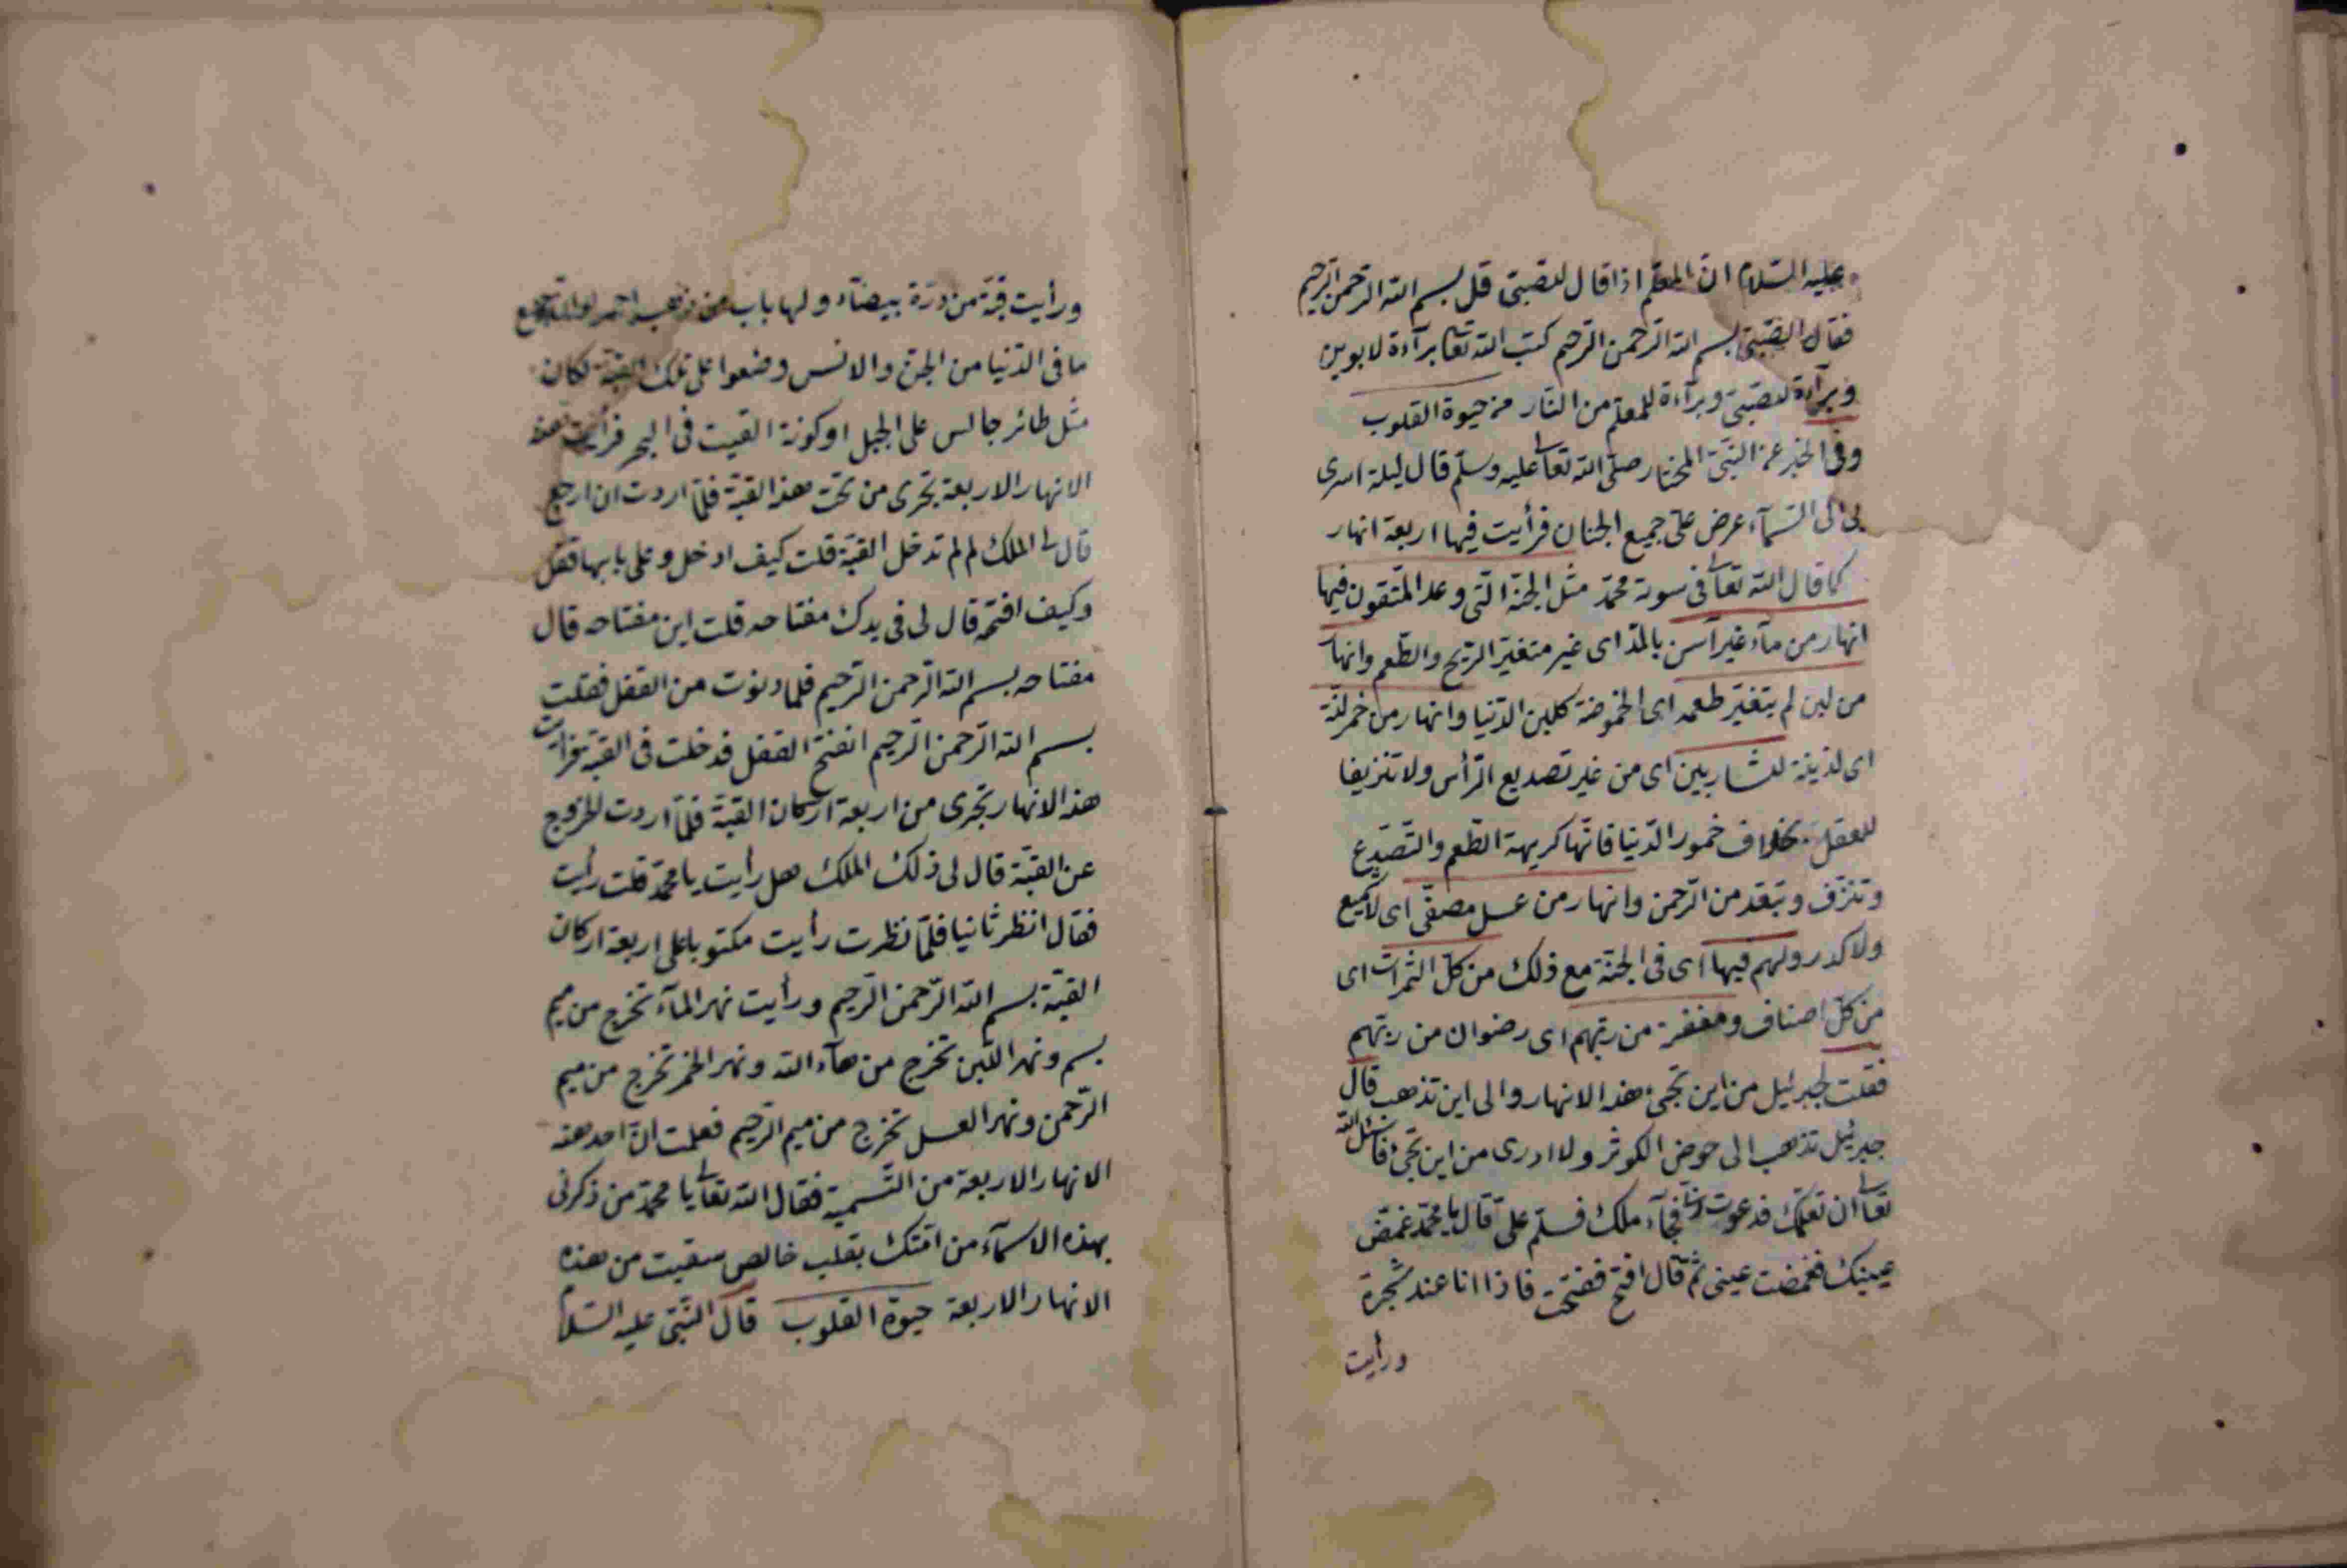 عليه السّلام انّ المعلّم اذا قال للصّبيّ قل بسم الله الرّحمن الرّحيم
فقال الصّبيّ بسم الله الرّحمن الرّحيم كتب الله تعا برآءة لابوين
وبرآءة للصّبيّ وبرآءة للمعلّم من النّار من حيوة القلوب
وفى الخبر عن النّبيّ المختار صلّى الله تعالى عليه وسلّم قال ليلة اسرى
بى الى السّمآء عرض علىّ جميع الجنان فرأيت فيها اربعة انهار
كما قال الله تعالى فى سورة محمّد مثل الجنّة الّتى وعد المتّقون فيها
انهار من مآء غير آسن بالمدّ اى غير متغيّر الرّيح والطّعم وانهار
من لبن لم يتغيّر طعمه اى الحموضة كلبن الدّنيا وانهار من خمر لذّة
اى لذيذة للشاربين اى من غير تصديع الرّأس ولا تنزيفا
للعقل بخلاف خمور الدّنيا فانّها كريهة الطّعم والتّصدّع
وتنزّف وتبعّد من الرّحمن وانهار من عسل مصفّى اى لا شمع
ولا كدر ولهم فيها اى فى الجنّة مع ذلك من كلّ الثمرات اى
من كلّ اصناف ومغفرة من ربّهم اى رضوان من ربّهم
فقلت لجبرئيل من اين تجئ هذه الانهار والى اين تذهب قال
جبرئيل تذهب الى حوض الكوثر ولا ادرى من اين تجئ فاسئل الله
تعالى ان تعلّمك فدعوت ربّى فجآء ملك فسلّم علىّ قال يا محمّد غمّض
عينيك فغمضت عينى ثمّ قال افتح ففتحت فاذا انا عند شجرة
ورأيت
ورأيت قبّة من درّة بيضآء ولها باب من ذهب احمر لو انّ جميع
ما فى الدّنيا من الجنّ والانس وضعوا على تلك القبّة لكان
مثل طائر جالس على الجبل او كوزة القيت فى البحر فرأيت هذه
الانهار الاربعة تجرى من تحت هذا القبّة فلمّا اردت ان ارجع
قال لى الملك لم لم تدخل القبّة قلت كيف ادخل وعلى بابها قفل
وكيف افتحه قال لى فى يدك مفتاحه قلت اين مفتاحه قال
مفتاحه بسم الله الرّحمن الرّحيم فلما دنوت من القفل فقلت
بسم الله الرّحمن الرّحيم انفتح القفل فدخلت فى القبّة فرأيت
هذا الانهار تجرى من اربعة اركان القبّة فلمّا اردت الخروج
عن القبّة قال لى ذلك الملك هل رأيت يا محمّد قلت رأيت
فقال انظر ثانيا فلمّا نظرت رأيت مكتوبا على اربعة اركان
القبّة بسم الله الرّحمن الرّحيم ورأيت نهر المآء تخرج من ميم
بسم ونهر اللّبن تخرج من هآء الله ونهر الخمر تخرج من ميم
الرّحمن ونهر العسل تخرج من ميم الرّحيم فعلمت انّ احد هذه
الانهار الاربعة من التّسمية فقال الله تعالى يا محمّد من ذكرنى
بهذه الاسمآء من امّتك بقلب خالص سقيت من هذه
الانهار الاربعة حيوة القلوب قال النّبىّ عليه السّلام